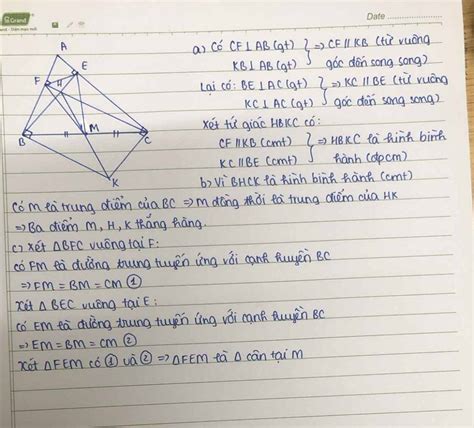 Grand
Date
A
E
F
H
B
M
C
K
a) Có CF⊥AB (gt) } => CF // KB (từ vuông
KB⊥AB (gt) góc đến song song)
Lại có: BE⊥AC (gt) } => KC // BE (từ vuông
KC⊥AC (gt) góc đến song song)
Xét tứ giác HBKC có:
CF // KB (cmt) } => HBKC là hình bình
KC // BE (cmt) hành (đpcm)
b) Vì BHCK là hình bình hành (cmt)
Có M là trung điểm của BC => M đồng thời là trung điểm của HK
=> Ba điểm M, H, K thẳng hàng.
c) Xét △BFC vuông tại F:
có FM là đường trung tuyến ứng với cạnh huyền BC
=> FM = BM = CM ①
Xét △ BEC vuông tại E:
có EM là đường trung tuyến ứng với cạnh huyền BC
=> EM = BM = CM ②
Xét △FEM có ① và ② => △FEM là △ cân tại M